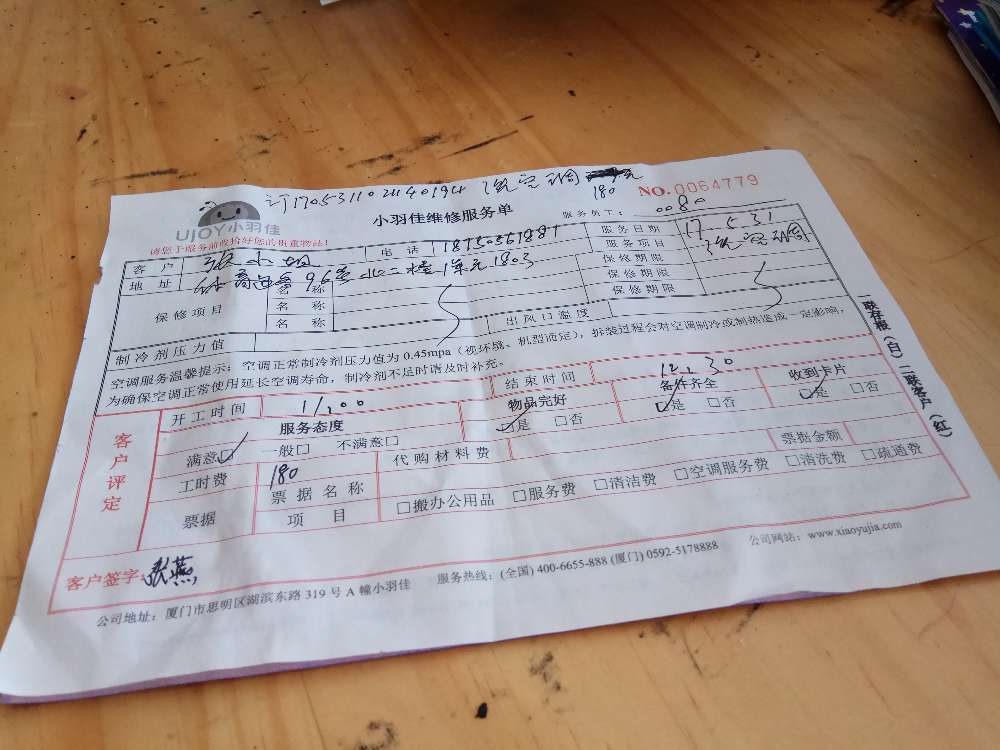 180
NO.0064779
UJOY小羽佳
小羽佳维修服务单
服务员工： 0080
请您于服务前收拾好您的贵重物品！
客户 张小姐 电话 服务日期 17.5.31
地址 96号 北二楼1单元1803 服务项目 洗空调
保修项目 名称 保修期限
名称 保修期限
名称 保修期限
制冷剂压力值 出风口温度
空调服务温馨提示：空调正常制冷剂压力值为0.45mpa（视环境、机型而定），拆装过程会对空调制冷或制热造成一定影响，
为确保空调正常使用延长空调寿命，制冷剂不足时请及时补充。
客户评定
开工时间 11:00 结束时间 12:30
服务态度 物品完好 备件齐全 收到卡片
满意☑ 一般□ 不满意□ ☑是 □否 ☑是 □否 ☑是 □否
工时费 180 代购材料费 票据金额
票据 票据名称
项目 □搬办公用品 □服务费 □清洁费 □空调服务费 □清洗费 □疏通费
客户签字： 张燕
公司地址：厦门市思明区湖滨东路319号A幢小羽佳 服务热线：(全国) 400-6655-888 (厦门) 0592-5178888 公司网站：www.xiaoyujia.com
一联存根（白）二联客户（红）